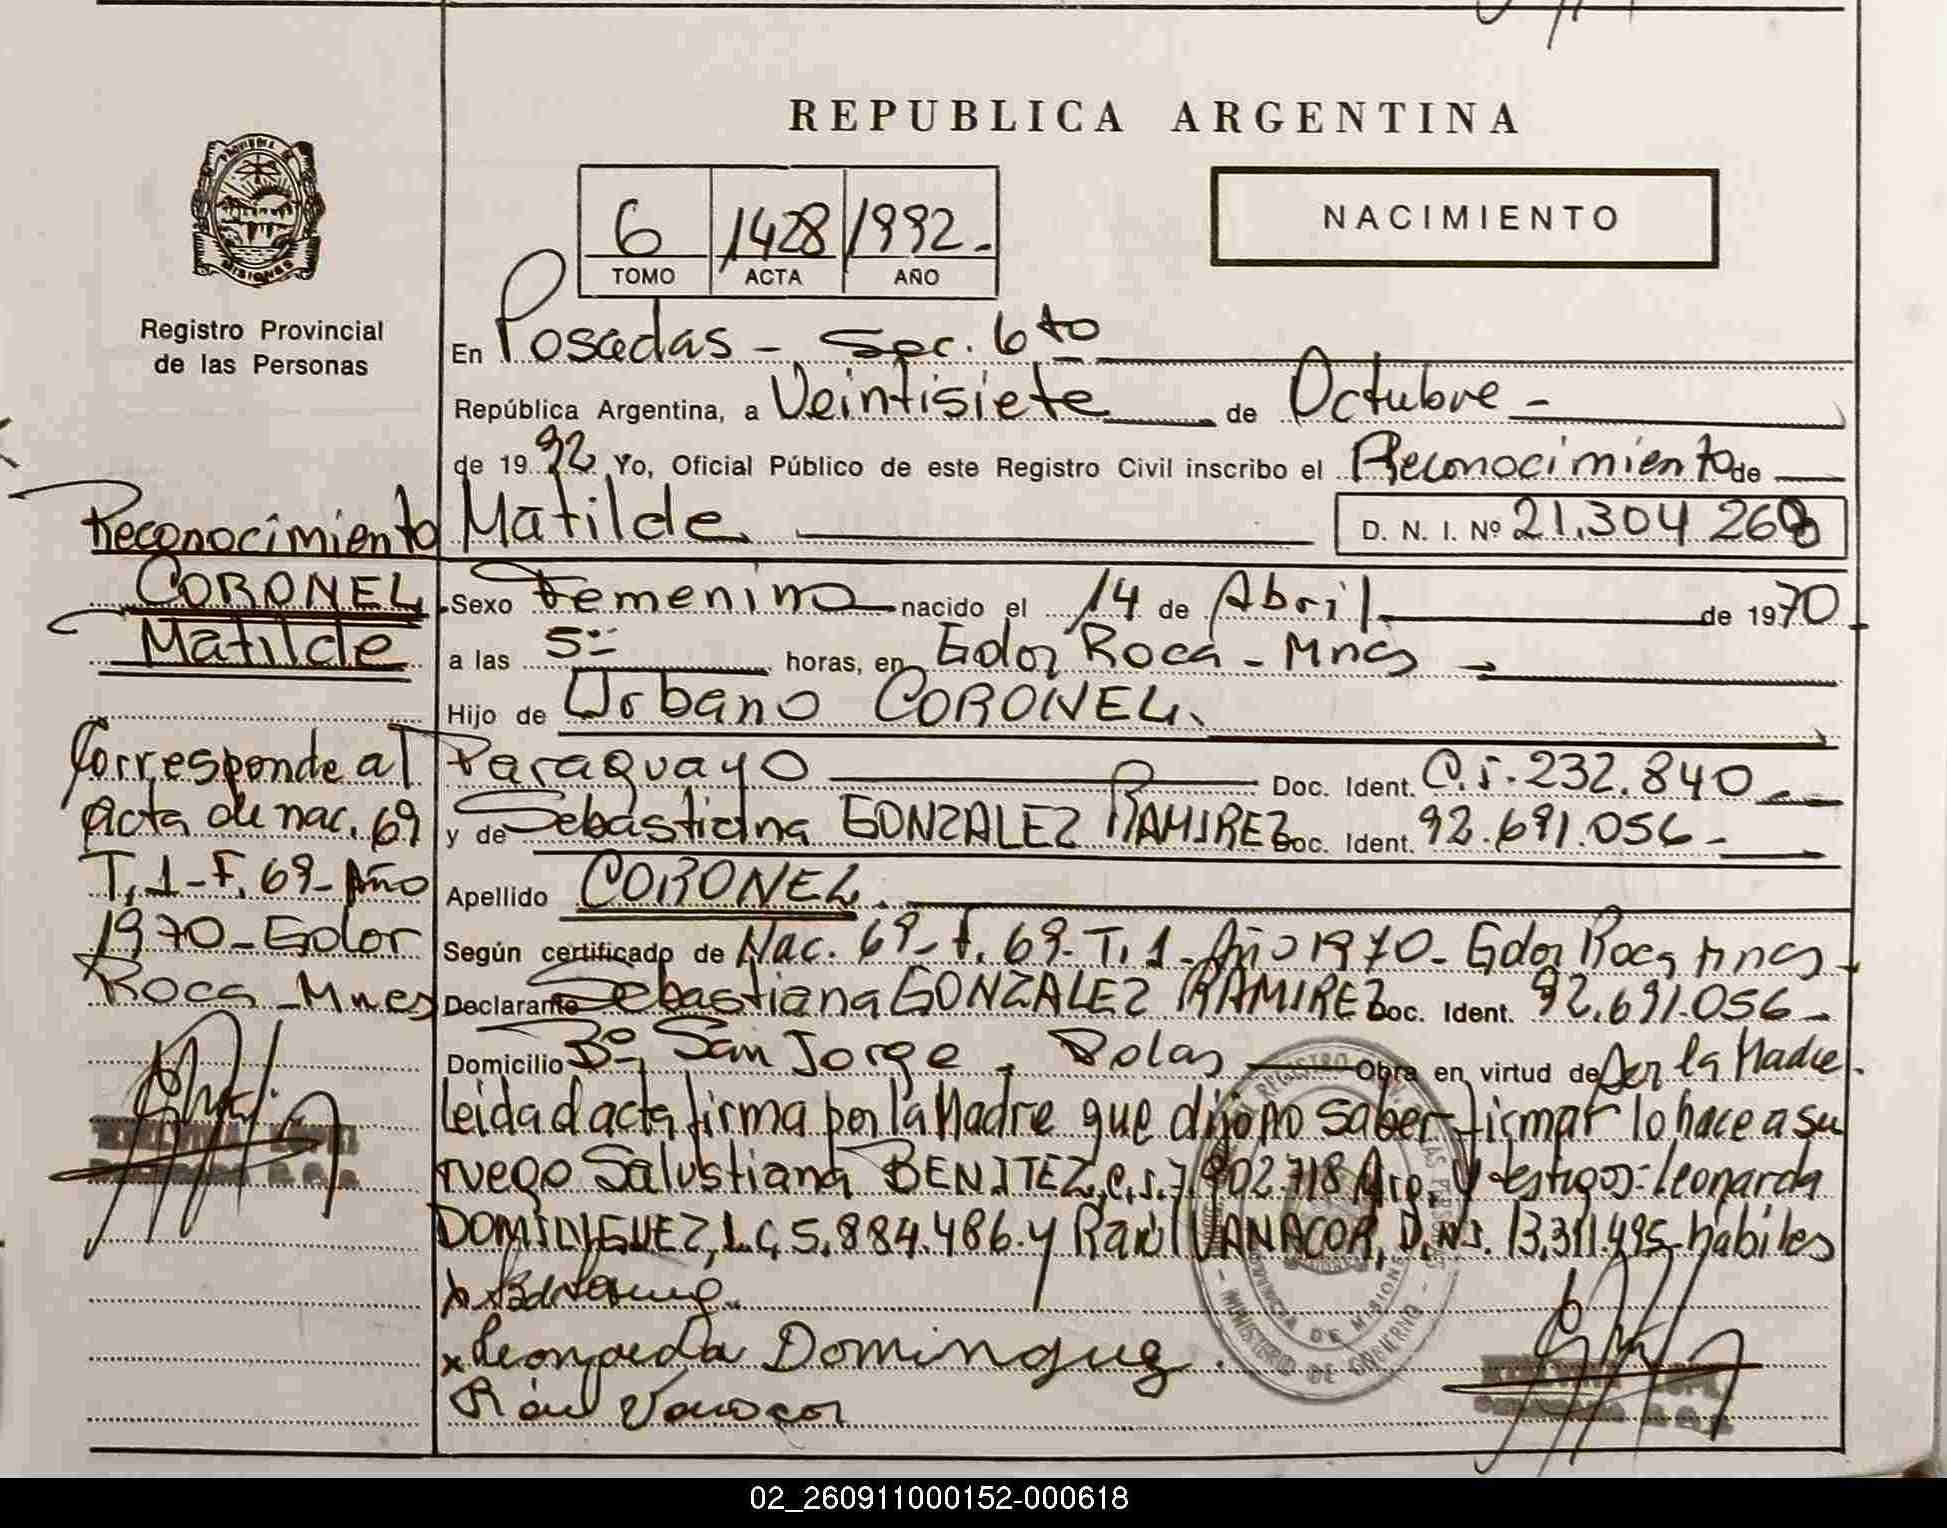 REPUBLICA ARGENTINA
6 1428 1992.-
TOMO ACTA AÑO
NACIMIENTO
Registro Provincial
de las Personas
En Posadas - Sec. 6to
República Argentina, a Veintisiete de Octubre -
de 1992 Yo, Oficial Público de este Registro Civil inscribo el Reconocimiento de
Matilde D. N. I. Nº 21.304 268
Sexo Femenino nacido el 14 de Abril de 1970
a las 5 horas, en Gdor Roca - Mnes
Hijo de Urbano CORONEL.
Paraguayo Doc. Ident. C.I. 232.840
y de Sebastiana GONZALEZ RAMIREZ Doc. Ident. 92.691.056-
Apellido CORONEL.
Según certificado de Nac. 69- F. 69- T. 1- Año 1970- Gdor Roca Mnes
Declarante Sebastiana GONZALEZ RAMIREZ Doc. Ident. 92.691.056-
Domicilio Bº San Jorge, Pdas Obra en virtud de Ser la Madre.
leida el acta firma por la Madre que dijo no saber firmar lo hace a su
ruego Salustiana BENITEZ, C.I. 7.902.718 Arg. y testigos: Leonarda
DOMINGUEZ, L.C, 5.884.486. y Raúl VANACOR, D.N.I. 13.311.495- habiles
x Leonarda Dominguez.
Raul Vanacor
Reconocimiento
CORONEL
Matilde
Corresponde al
Acta de nac. 69
T, 1- F. 69- Año
1970- Gdor
Roca - Mnes
REGISTRO
PROVINCIA DE MISIONES
MINISTERIO DE GOBIERNO
02_260911000152-000618